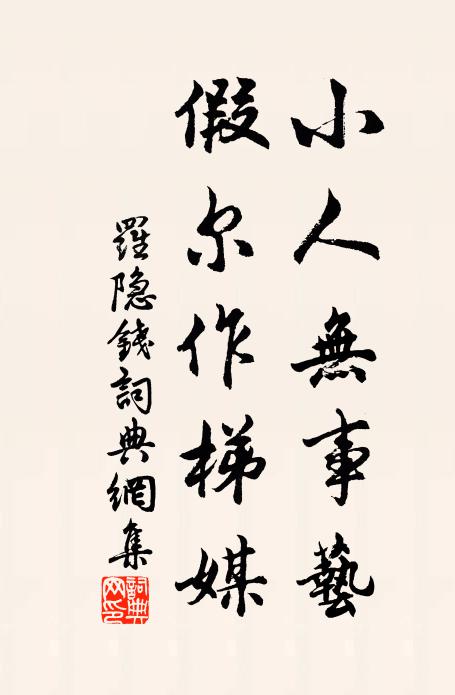 小人無事藝
假尔作梯媒
羅隐錢詞典網集
詞典网印